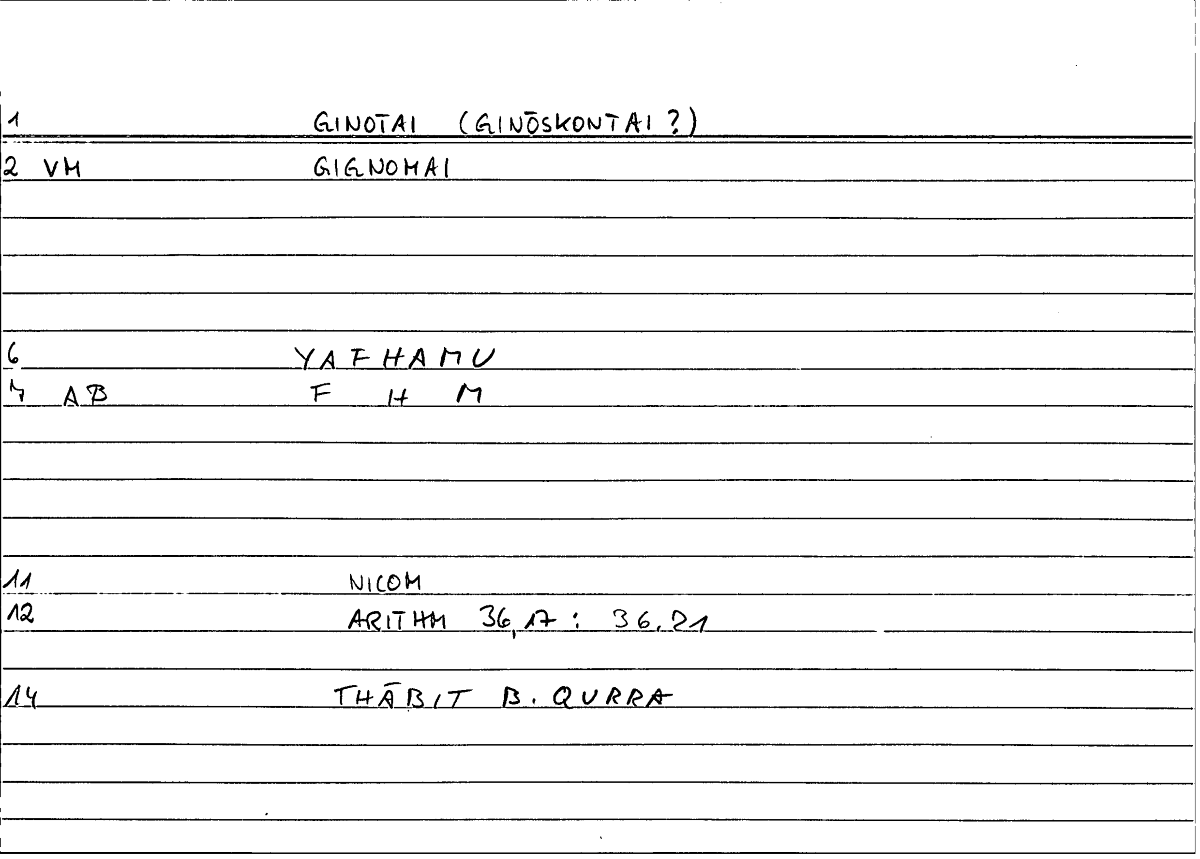 1 GINOTAI (GINŌSKONTAI ?)
2 VM GIGNOMAI
6 YAFHAMU
7 AB F H M
11 NICOM
12 ARITHM 36,17 : 36.21
14 THĀBIT B. QURRA